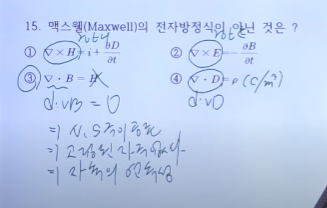 15. 맥스웰(Maxwell)의 전자방정식이 아닌 것은 ?
rot H
rot E
① ∇ × H = i + ∂D/∂t
② ∇ × E = - ∂B/∂t
③ ∇ · B = 
④ ∇ · D = ρ (C/m³)
div B = 0
div D
⇒ N, S극이 공존
⇒ 고립된 자극 없다.
⇒ 자속의 연속성